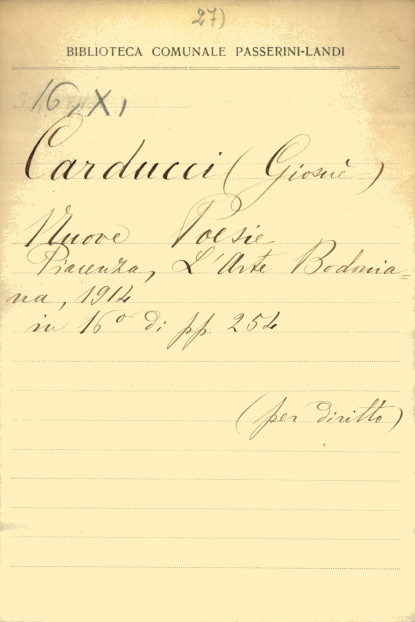 27)
BIBLIOTECA COMUNALE PASSERINI-LANDI
16, XI
Carducci (Giosuè)
Nuove Poesie
Piacenza, L'Arte Bodonia=
na, 1914
in 16º di pp. 254
(per diritto)